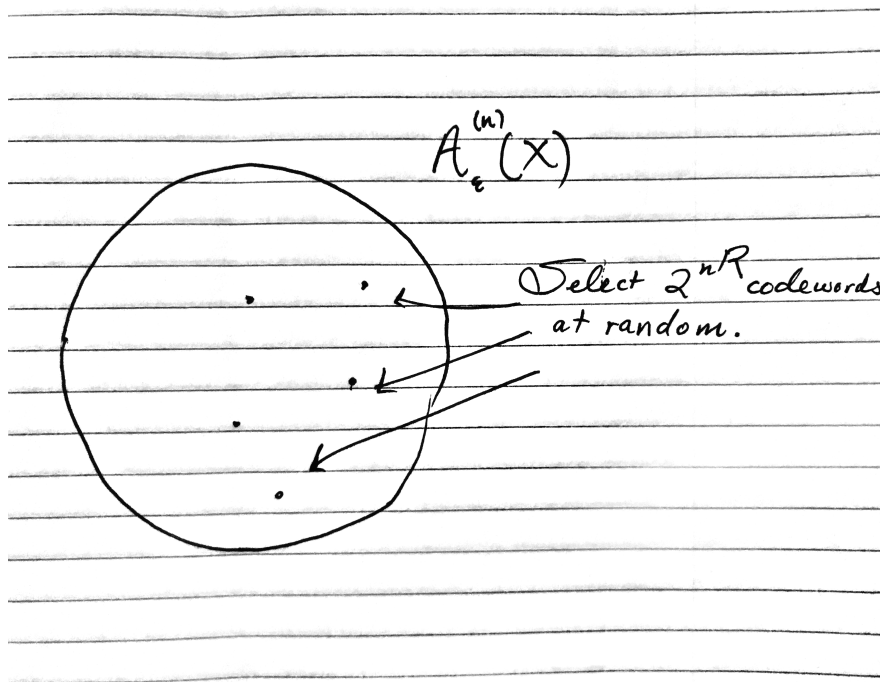 A_ε^(n)(X)
Select 2^nR codewords
at random.